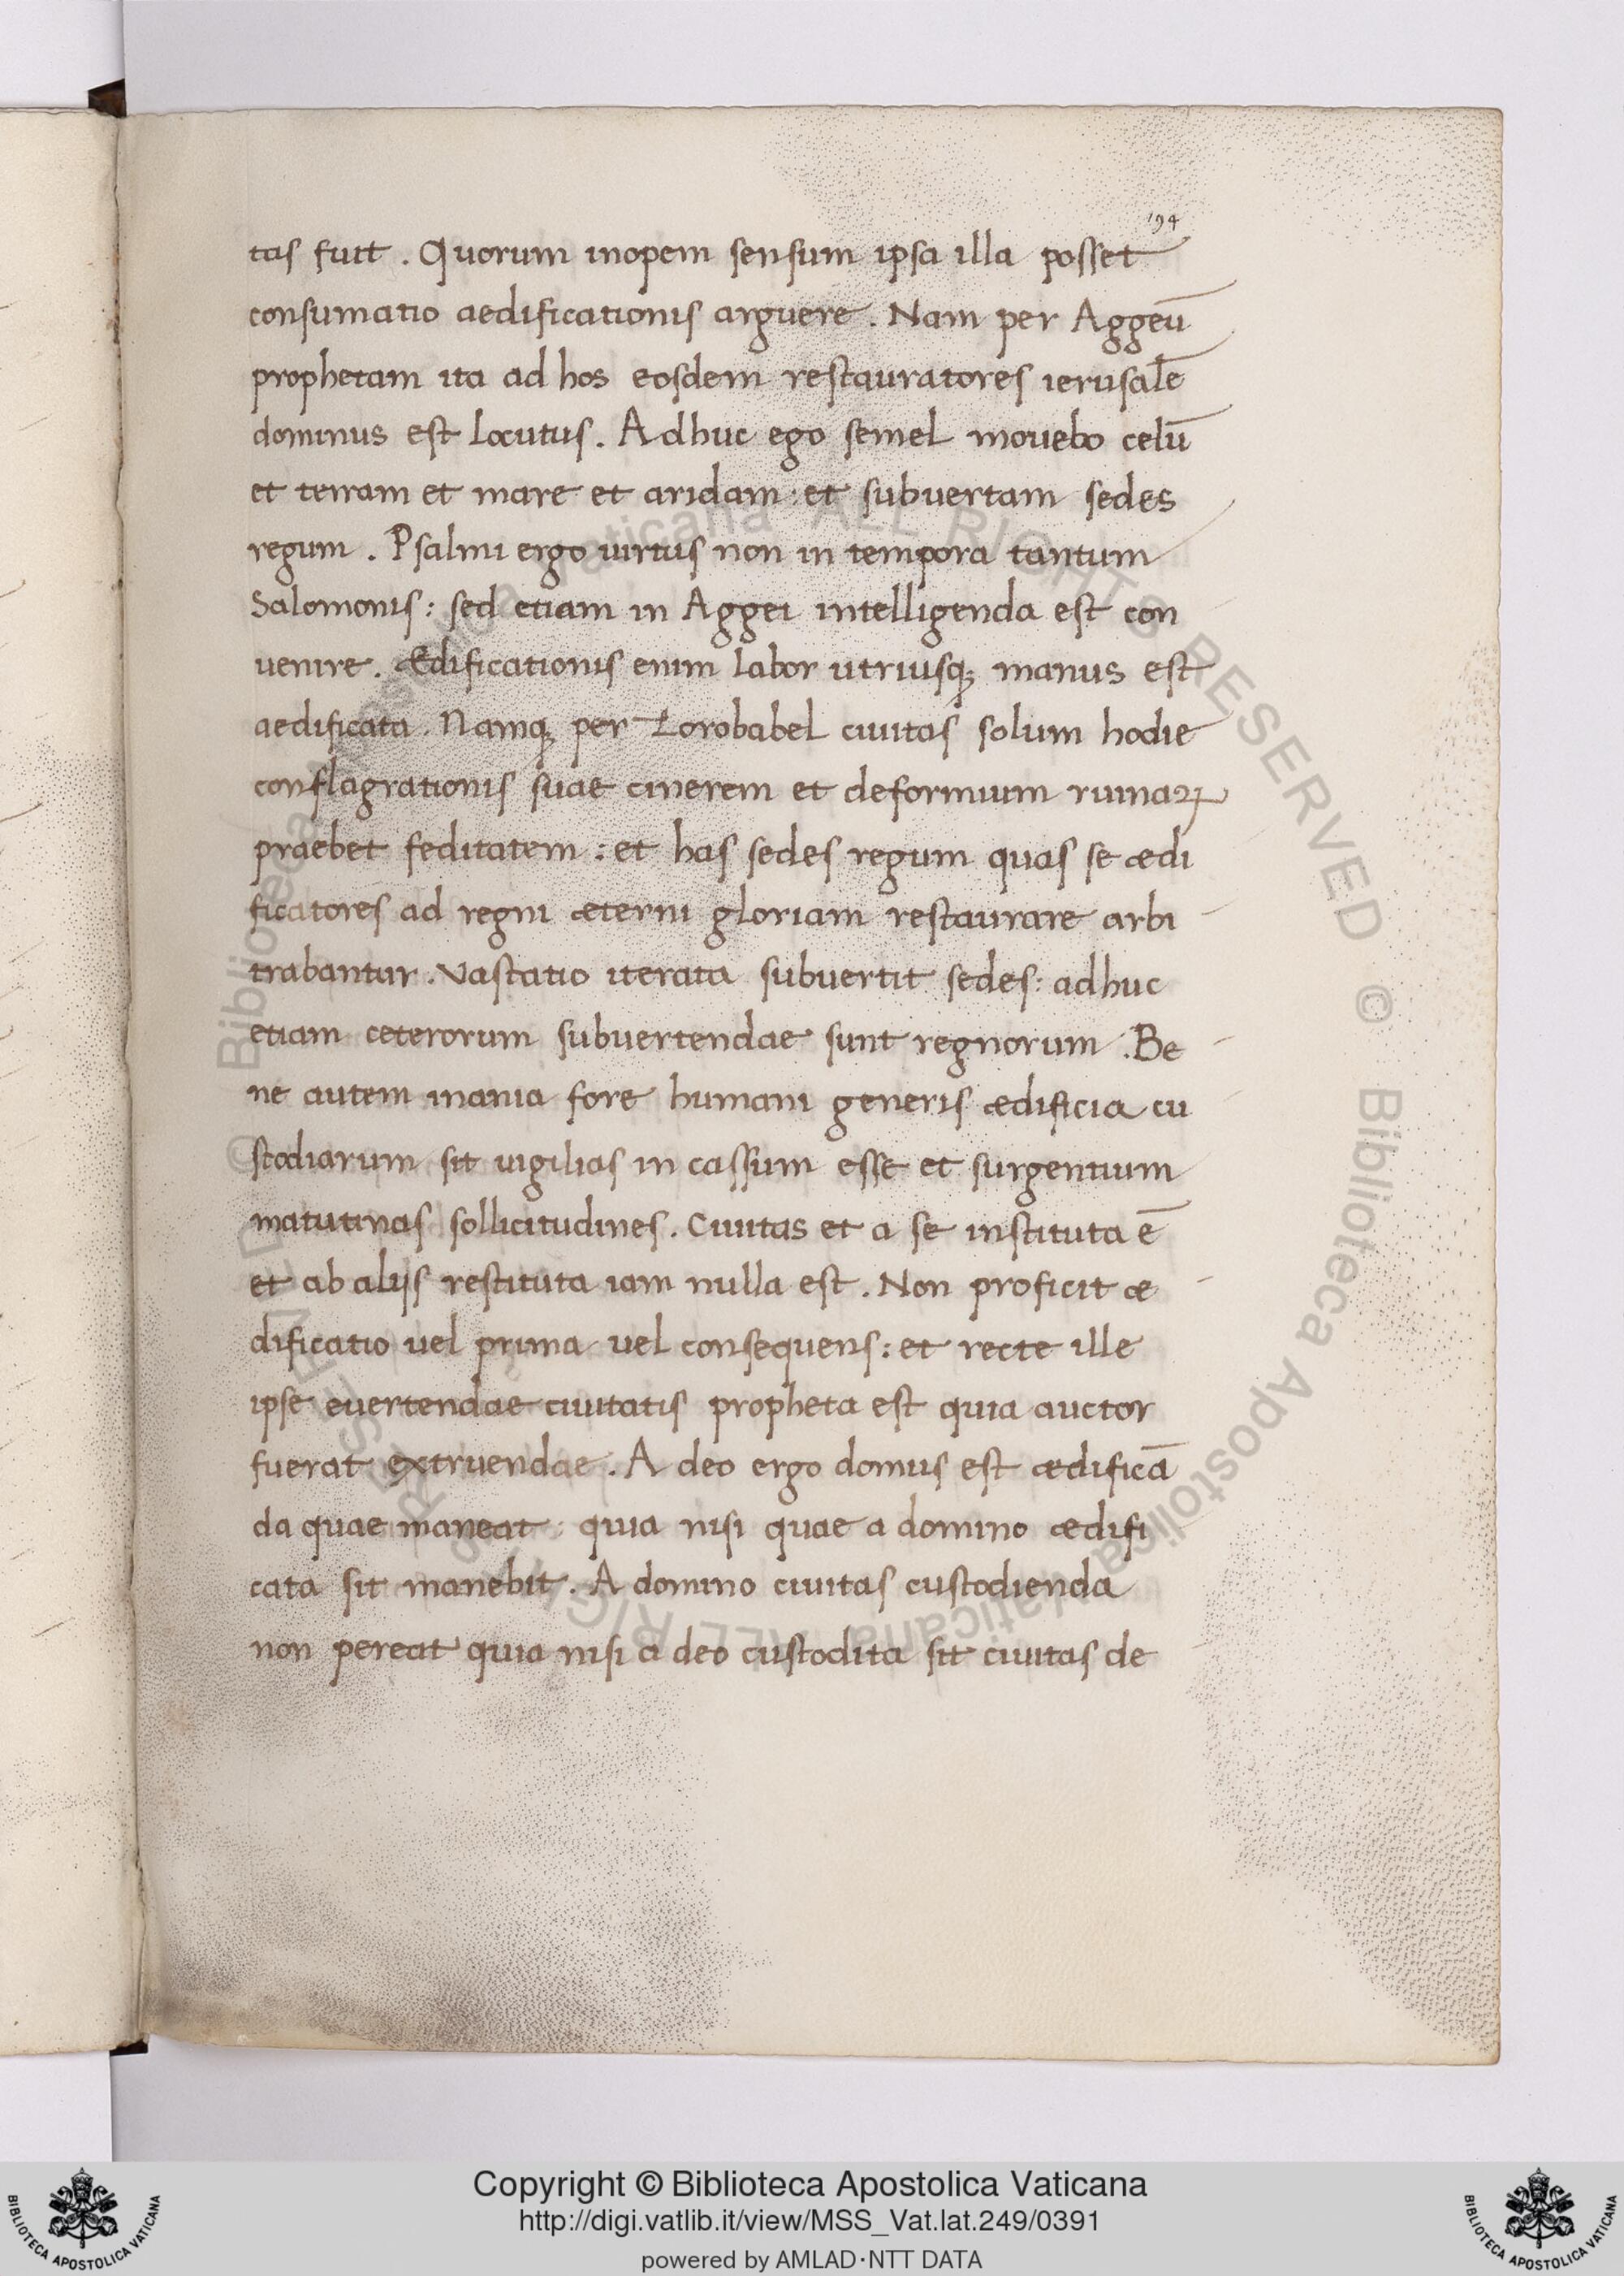 194
tas fuit . Quorum inopem sensum ipsa illa posset
consumatio aedificationis arguere . Nam per Aggeū
prophetam ita ad hos eosdem restauratores ierusalē
dominus est locutus . Adhuc ego semel mouebo celū
et terram et mare et aridam : et subuertam sedes
regum . Psalmi ergo uirtus non in tempora tantum
Salomonis : sed etiam in Aggei intelligenda est con
uenire . Ædificationis enim labor utriusqꝫ manus est
aedificata . Namqꝫ per Zorobabel ciuitas solum hodie
conflagrationis suae cinerem et deformium ruinaꝝ
praebet feditatem : et has sedes regum quas se ædi
ficatores ad regni æterni gloriam restaurare arbi
trabantur . Vastatio iterata subuertit sedes : adhuc
etiam ceterorum subuertendae sunt regnorum . Be
ne autem inania fore humani generis ædificia cu
stodiarum sit uigilias in cassum esse et surgentium
matutinas sollicitudines . Ciuitas et a se instituta ē
et ab alijs restituta iam nulla est . Non proficit æ
dificatio uel prima uel consequens : et recte ille
ipse euertendae ciuitatis propheta est quia auctor
fuerat extruendae . A deo ergo domus est ædificā
da quae maneat : quia nisi quae a domino ædifi
cata sit manebit . A domino ciuitas custodienda
non pereat quia nisi a deo custodita sit ciuitas de
© Biblioteca Apostolica Vaticana ALL RIGHTS RESERVED © Biblioteca Apostolica Vaticana ALL RIGHTS RESERVED
Copyright © Biblioteca Apostolica Vaticana
http://digi.vatlib.it/view/MSS_Vat.lat.249/0391
powered by AMLAD·NTT DATA
BIBLIOTECA APOSTOLICA VATICANA
BIBLIOTECA APOSTOLICA VATICANA